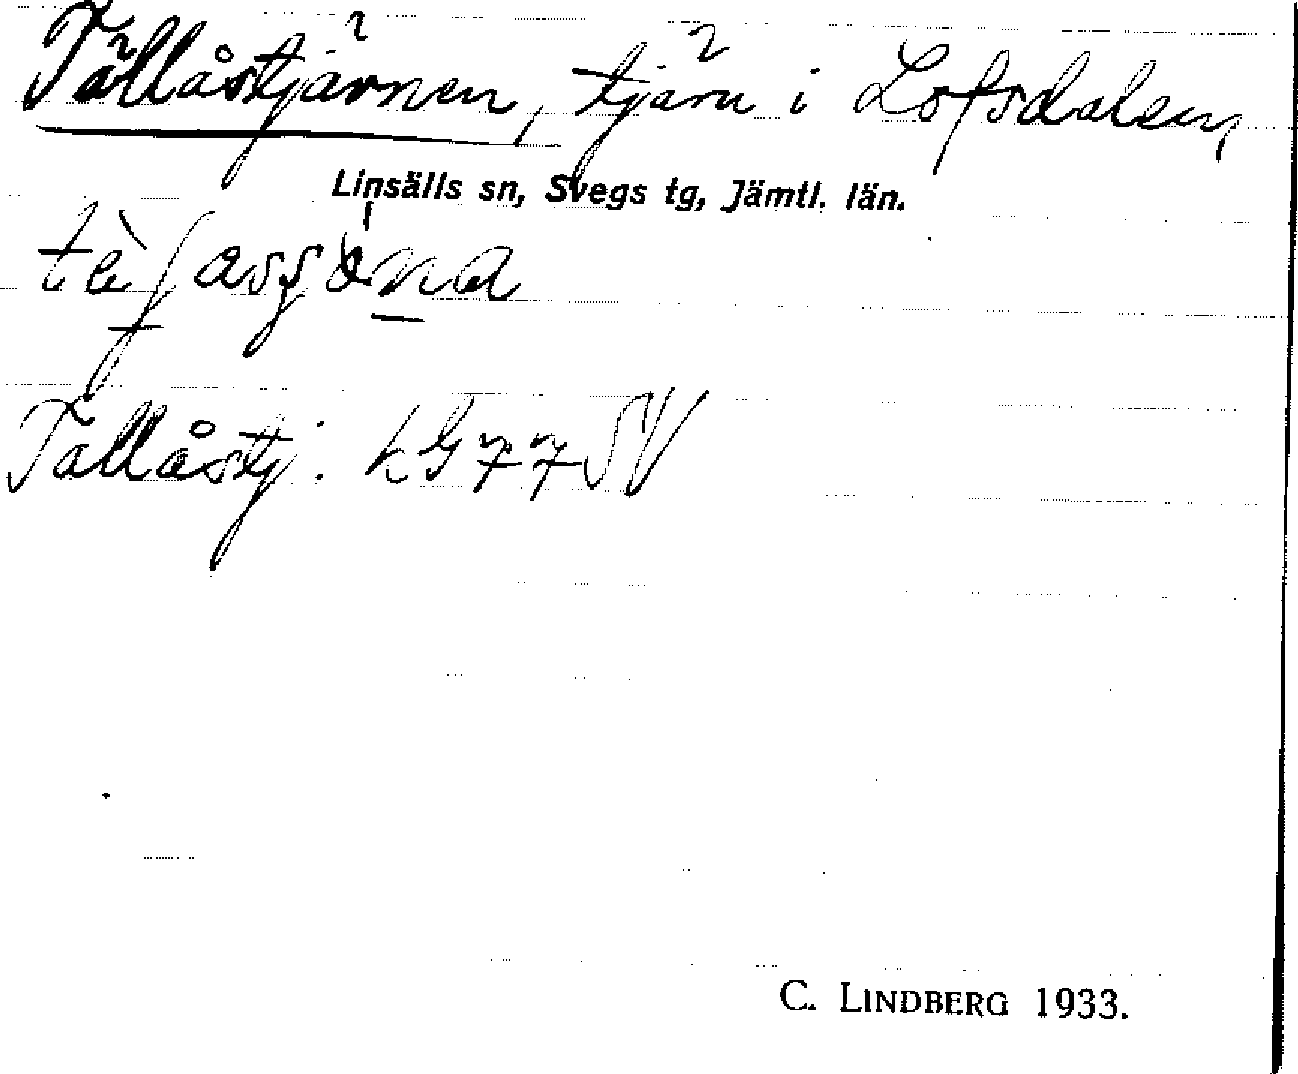 Tållåstjärnen, tjärn i Lofsdalen,
Linsälls sn, Svegs tg, Jämtl. län.
Tallåstj: LG 77 SV
C. LINDBERG 1933.